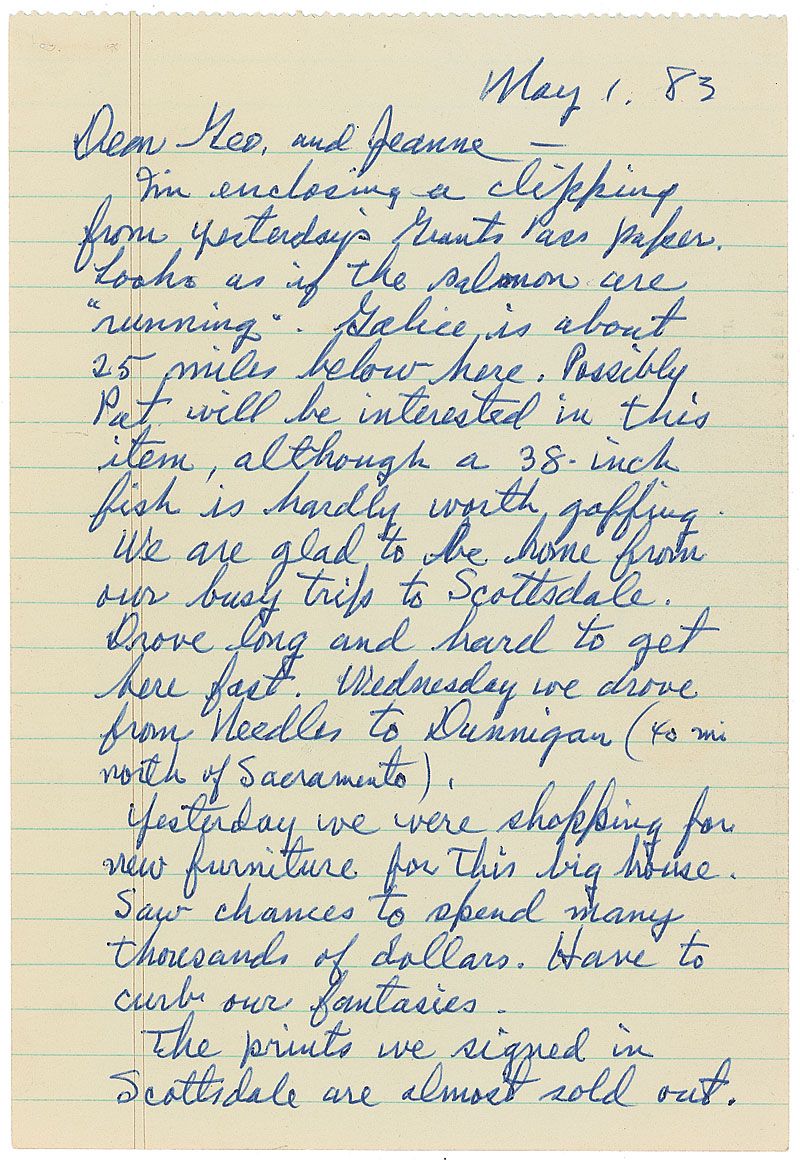 May 1. 83
Dear Geo, and Jeanne —
I'm enclosing a clipping
from yesterday's Grants Pass paper.
Looks as if the salmon are
"running". Galice is about
25 miles below here. Possibly
Pat will be interested in this
item, although a 38-inch
fish is hardly worth gaffing.
We are glad to be home from
our busy trip to Scottsdale.
Drove long and hard to get
here fast. Wednesday we drove
from Needles to Dunnigan (40 mi
north of Sacramento).
Yesterday we were shopping for
new furniture for this big house.
Saw chances to spend many
thousands of dollars. Have to
curb our fantasies.
The prints we signed in
Scottsdale are almost sold out.